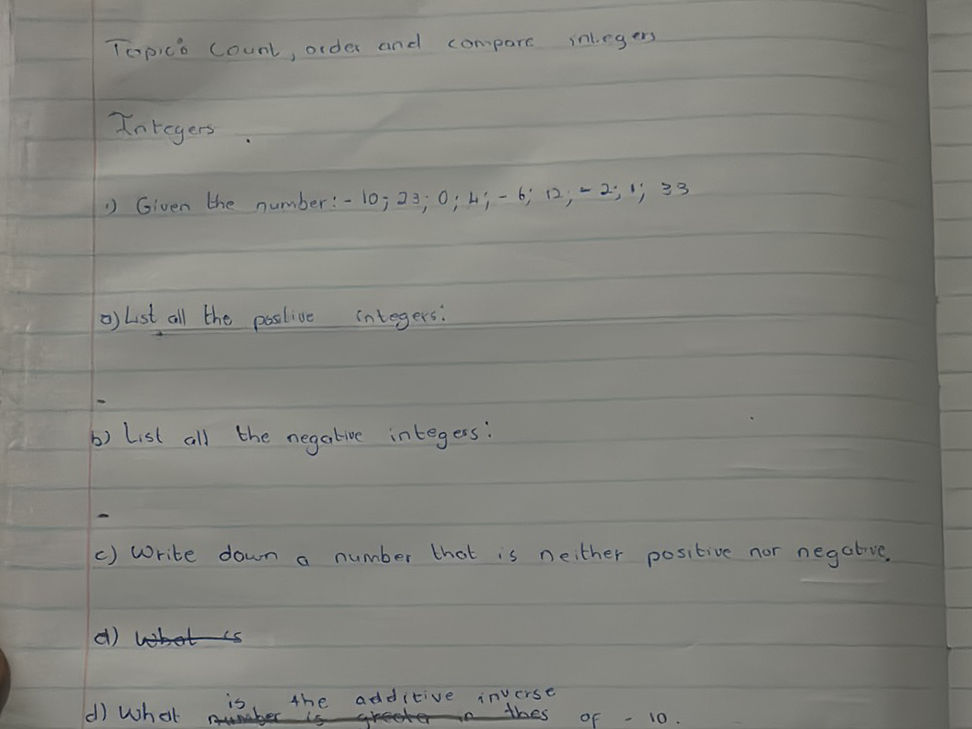 Topic: Count, order and compare integers
Integers.
1) Given the number: - 10; 23; 0; 4; - 6; 12; - 2; 1; 33
a) List all the positive integers:
-
b) List all the negative integers:
-
c) Write down a number that is neither positive nor negative.
d) What is
is the additive inverse
d) What number is greater in thes of - 10.